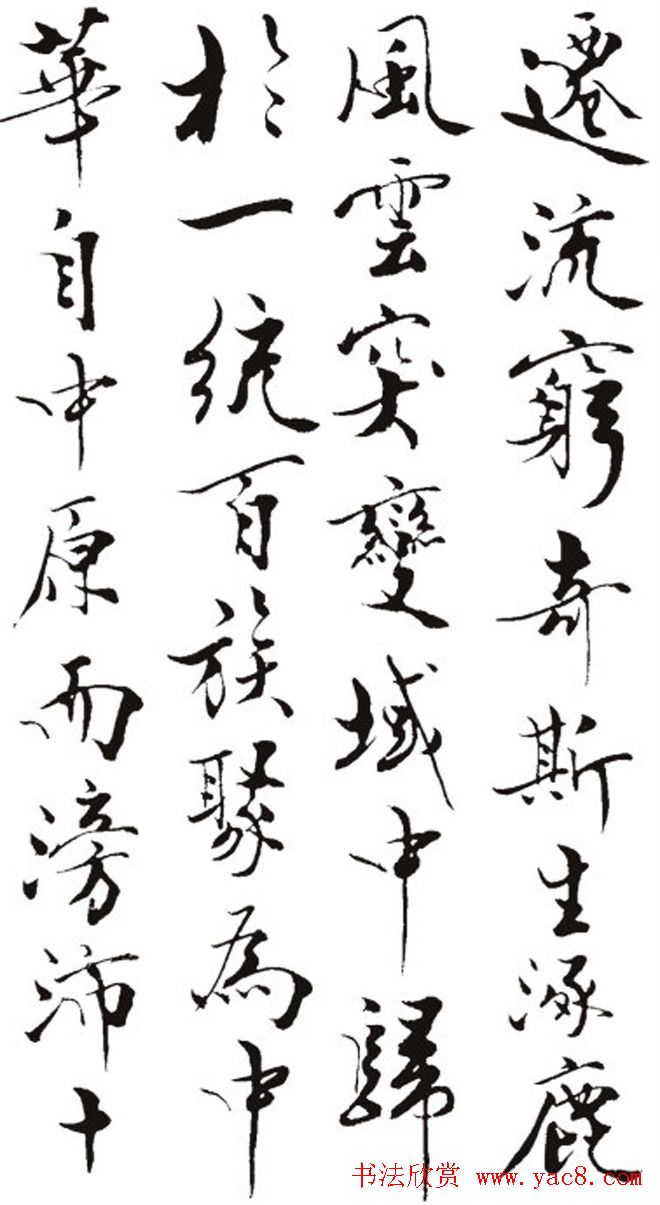 遷流窮奇斯生涿鹿
風雲突變域中歸
於一統百族聚為中
華自中原而滂沛十
书法欣赏 www.yac8.com